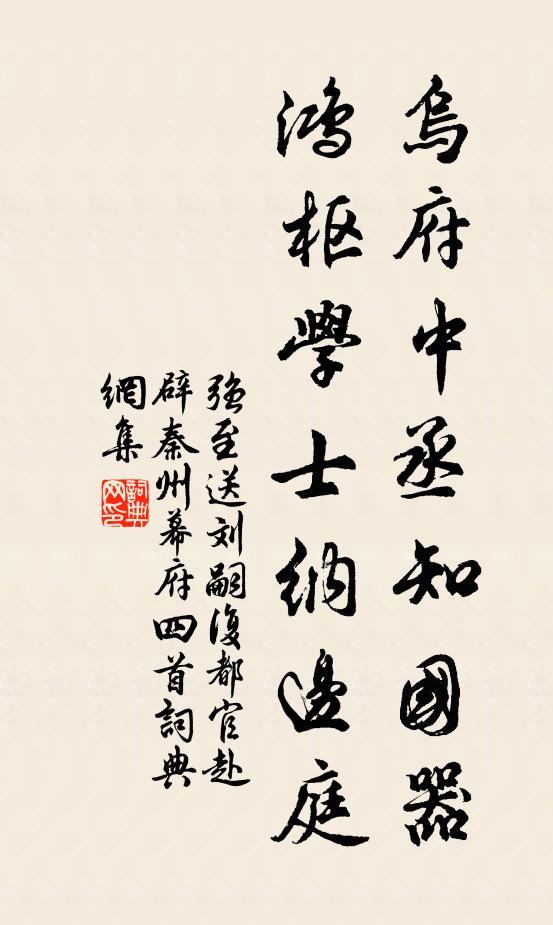 烏府中丞知國器
鴻樞學士納邊庭
強至送刘嗣復都官赴
辟秦州幕府四首詞典
網集
詞典
网印